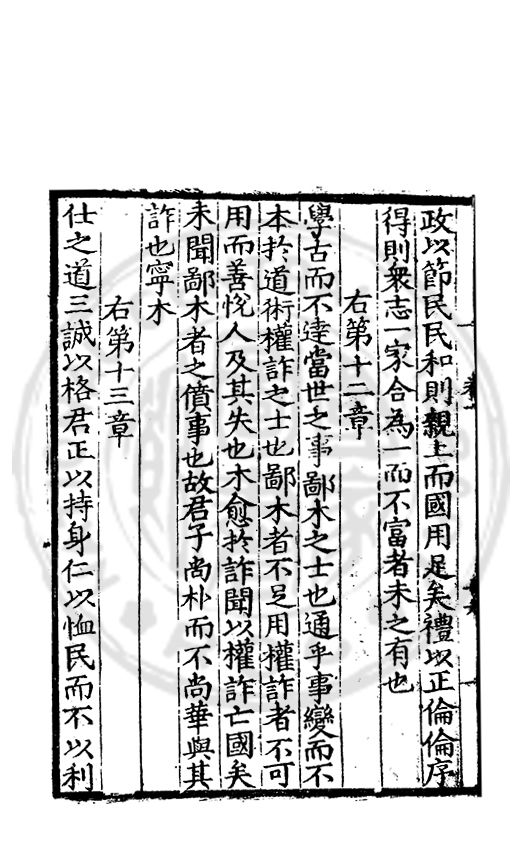 政以節民民和則親上而國用足矣禮以正倫倫序
得則衆志一家合為一而不富者未之有也
右第十二章
學古而不達當世之事鄙木之士也通乎事變而不
本扵道術權詐之士也鄙木者不足用權詐者不可
用而善恱人及其失也木愈扵詐聞以權詐亡國矣
未聞鄙木者之僨事也故君子尚朴而不尚華與其
詐也寧木
右第十三章
仕之道三誠以格君正以持身仁以恤民而不以利